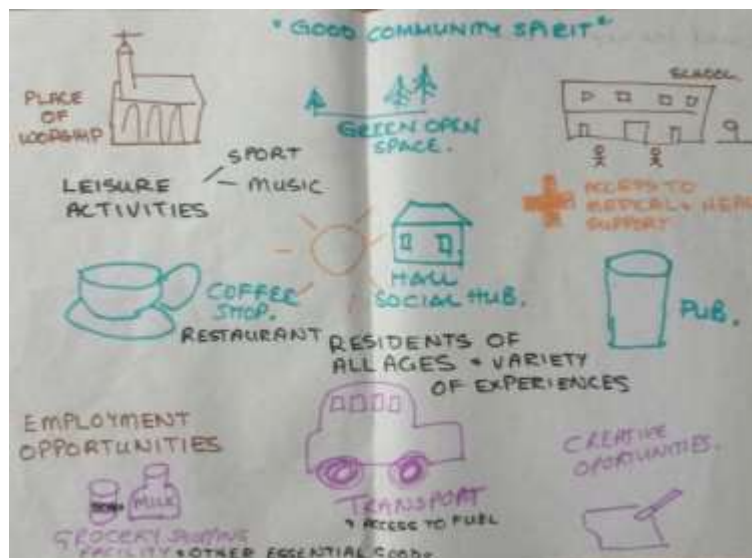 "GOOD COMMUNITY SPIRIT"
PLACE
OF
WORSHIP
GREEN OPEN
SPACE.
SCHOOL
LEISURE
ACTIVITIES
SPORT
MUSIC
ACCESS TO
MEDICAL +
SUPPORT
COFFEE
SHOP.
RESTAURANT
HALL
SOCIAL HUB.
PUB.
RESIDENTS OF
ALL AGES + VARIETY
OF EXPERIENCES
EMPLOYMENT
OPPORTUNITIES
MILK
GROCERY SHOPPING
FACILITY + OTHER ESSENTIAL GOODS
TRANSPORT
+ ACCESS TO FUEL
CREATIVE
OPORTUNITIES.